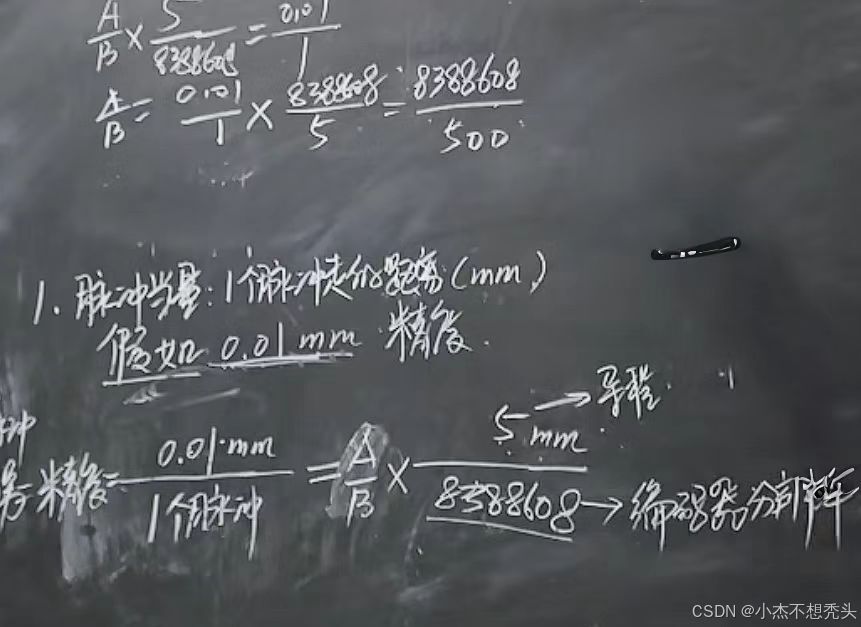 A/B × 5/8388608 = 0.01/1
A/B = 0.01/1 × 8388608/5 = 8388608/500
1. 脉冲当量:1个脉冲走的距离(mm)
假如 0.01 mm 精度.
冲
精度 = 0.01mm/1个脉冲 = A/B × 5mm/8388608
5 mm → 导程
8388608 → 编码器分辨率
CSDN @小杰不想秃头